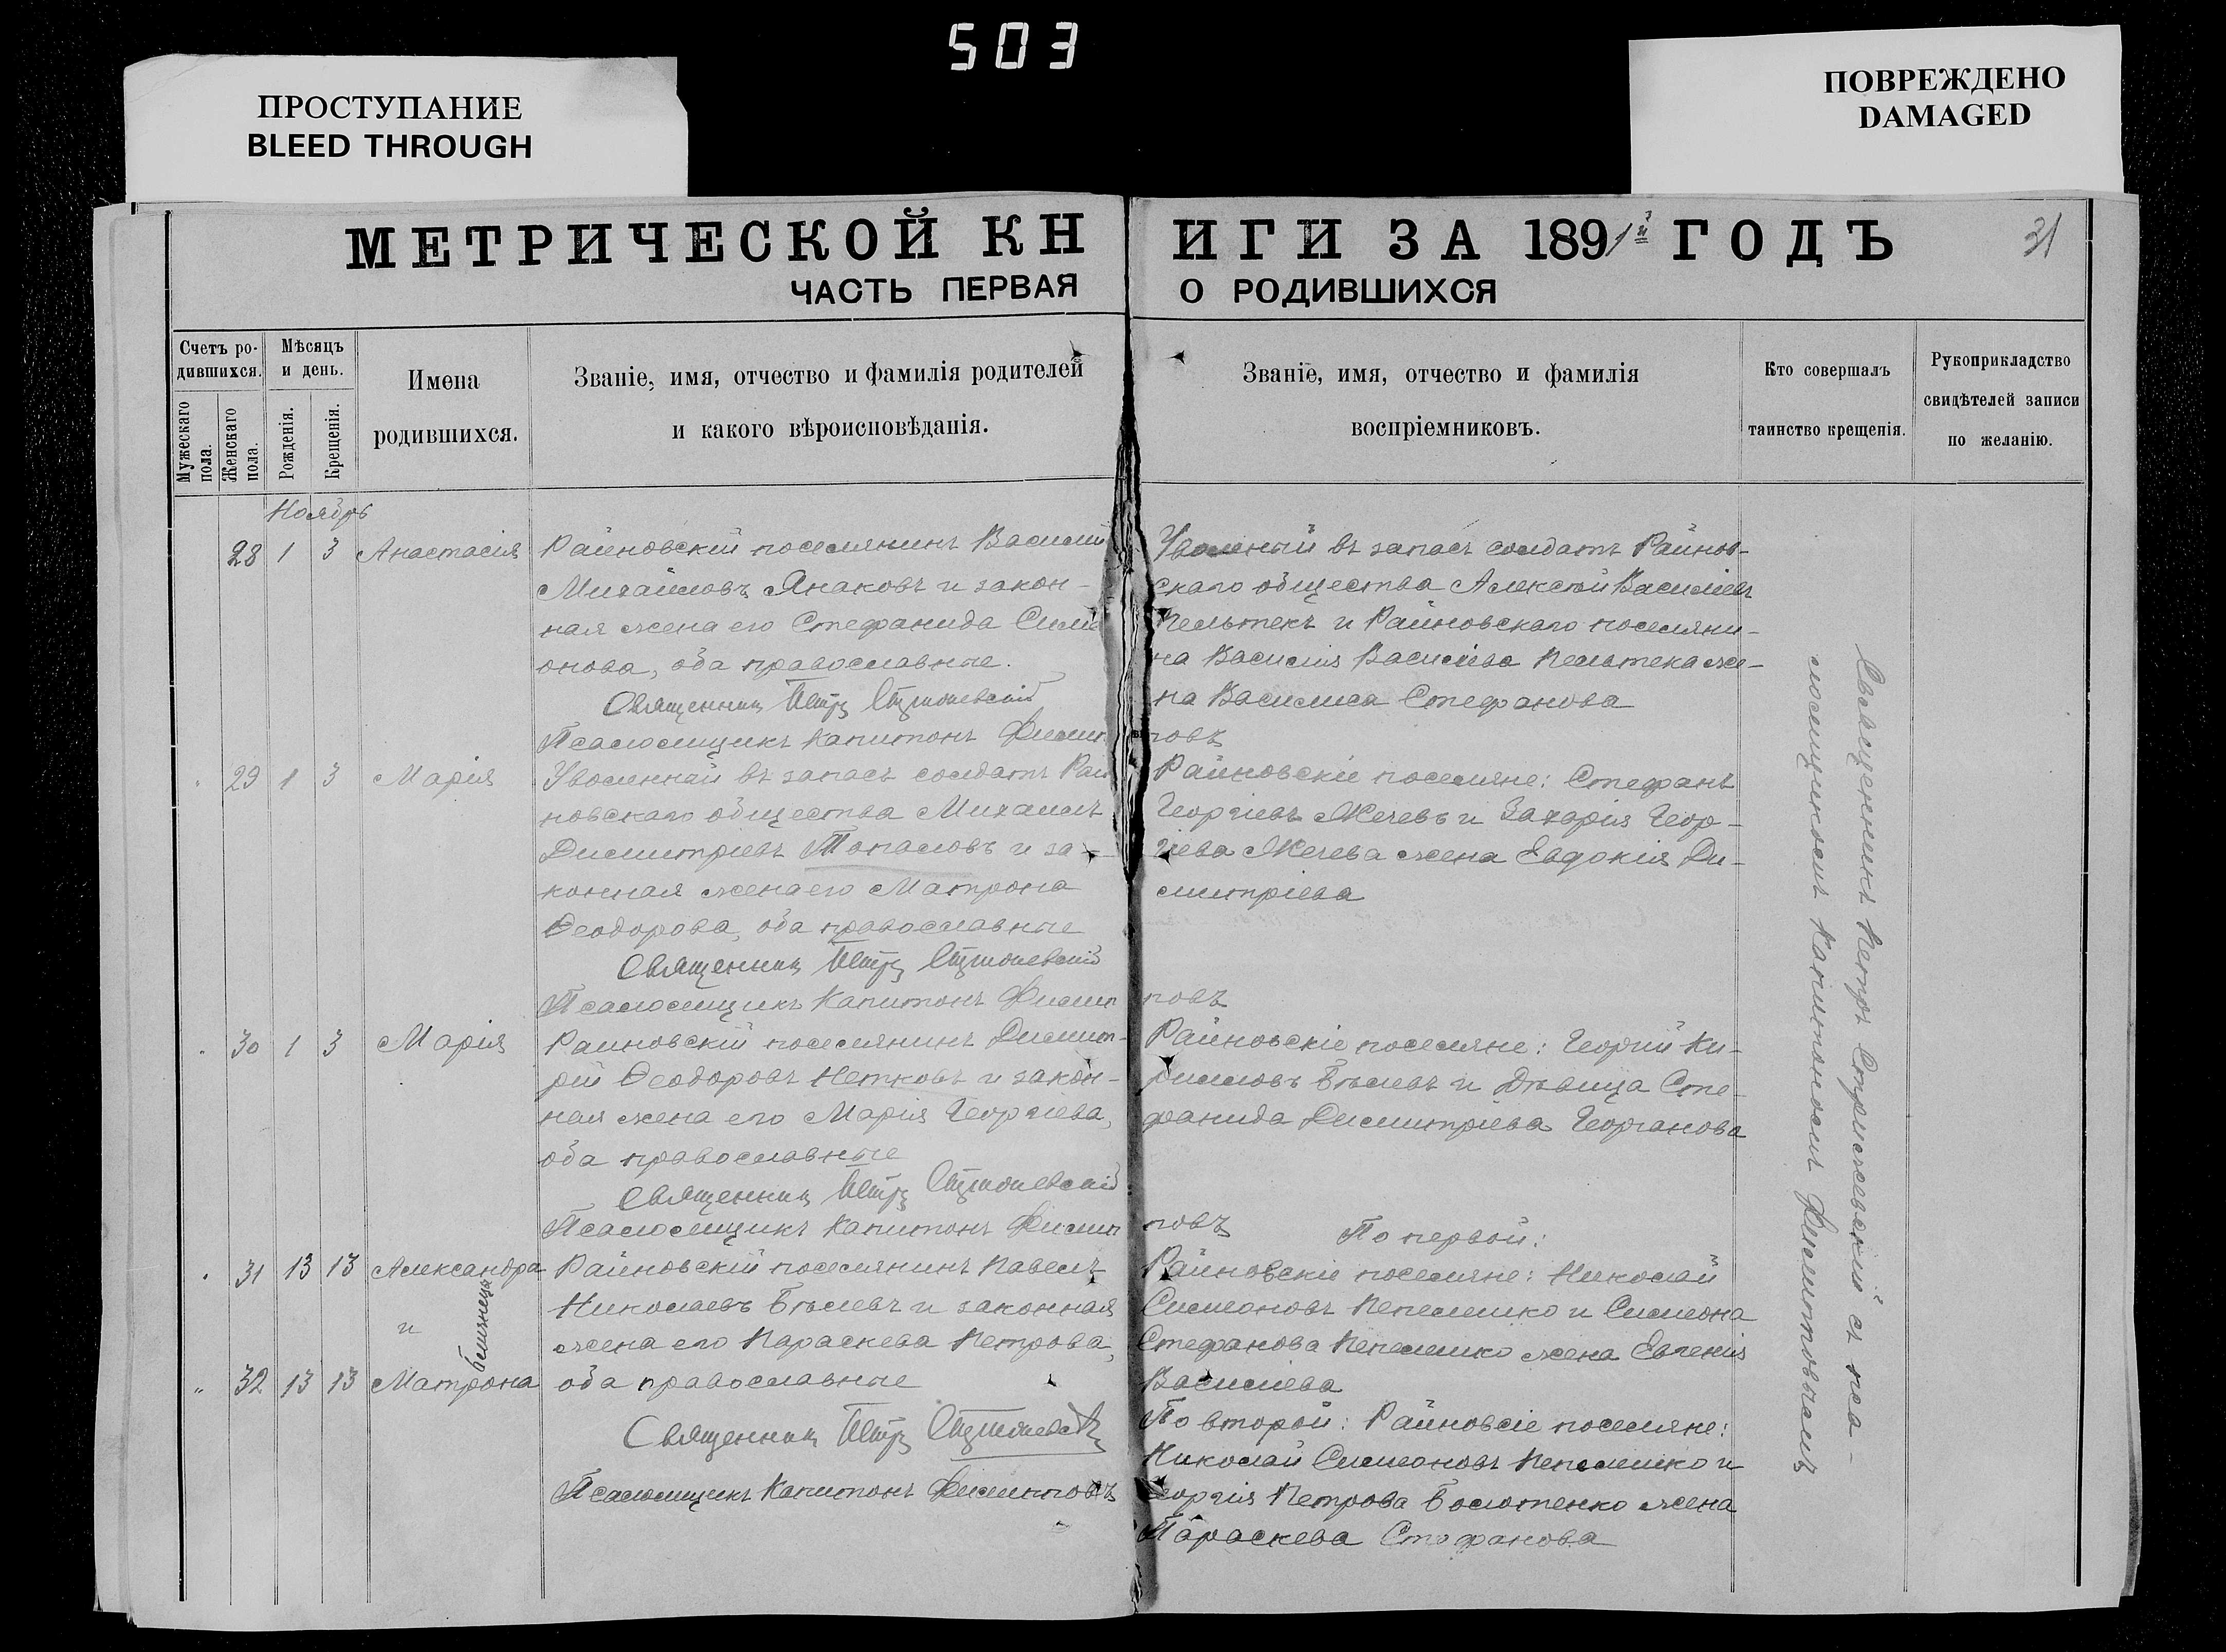 503
ПРОСТУПАНИЕ
BLEED THROUGH
ПОВРЕЖДЕНО
DAMAGED
МЕТРИЧЕСКОЙ КН
ИГИ ЗА 1891й ГОДЪ
31
ЧАСТЬ ПЕРВАЯ
О РОДИВШИХСЯ
Счетъ ро-
дившихся.
Мужескаго пола.
Женскаго пола.
Мѣсяцъ
и день.
Рожденія.
Крещенія.
Имена
родившихся.
Званіе, имя, отчество и фамилія родителей
и какого вѣроисповѣданія.
Званіе, имя, отчество и фамилія
воспріемниковъ.
Кто совершалъ
таинство крещенія.
Рукоприкладство
свидѣтелей записи
по желанію.
Ноябрь
28 1 3 Анастасія
Раиновскій поселянинъ Василій
Михайловъ Янаковъ и закон-
ная жена его Стефанида Сими
онова, оба православные.
Священникъ Петръ
Псаломщикъ Капитонъ Филип
повъ
Уволенный въ запасъ солдатъ Раинов-
скаго общества Алексѣй Василіевъ
Пельтекъ и Раиновскаго поселяни-
на Василія Василіева Пельтека же-
на Василиса Стефанова
29 1 3 Марія
Уволенный въ запасъ солдатъ Раи
новскаго общества Михаилъ
Димитріевъ Топаловъ и за-
конная жена его Матрона
Ѳеодорова, оба православные
Священникъ Петръ
Псаломщикъ Капитонъ Филип
повъ
Раиновскіе поселяне: Стефанъ
Георгіевъ Жечевъ и Захарія Геор-
гіева Жечева жена Евдокія Ди-
митріева
30 1 3 Марія
Раиновскій поселянинъ Димит-
рій Ѳеодоровъ Нетковъ и закон-
ная жена его Марія Георгіева,
оба православные
Священникъ Петръ
Псаломщикъ Капитонъ Филип
повъ
Раиновскіе поселяне: Георгій Ки-
рилловъ Бѣлевъ и дѣвица Сте-
фанида Димитріева Георганова
31 13 13 Александра
и
близнецы
32 13 13 Матрона
Раиновскій поселянинъ Павелъ
Николаевъ Бѣлевъ и законная
жена его Параскева Петрова,
оба православные
Священникъ Петръ
Псаломщикъ Капитонъ Филипповъ
По первой:
Раиновскіе поселяне: Николай
Симеоновъ Пепелешко и Симеона
Стефанова Пепелешко жена Евгенія
Василіева
По второй: Раиновсіе поселяне:
Николай Симеоновъ Пепелешко и
Георгія Петрова Болотенко жена
Параскева Стефанова
Священникъ Петръ с пса-
ломщикомъ Капитономъ Филипповымъ